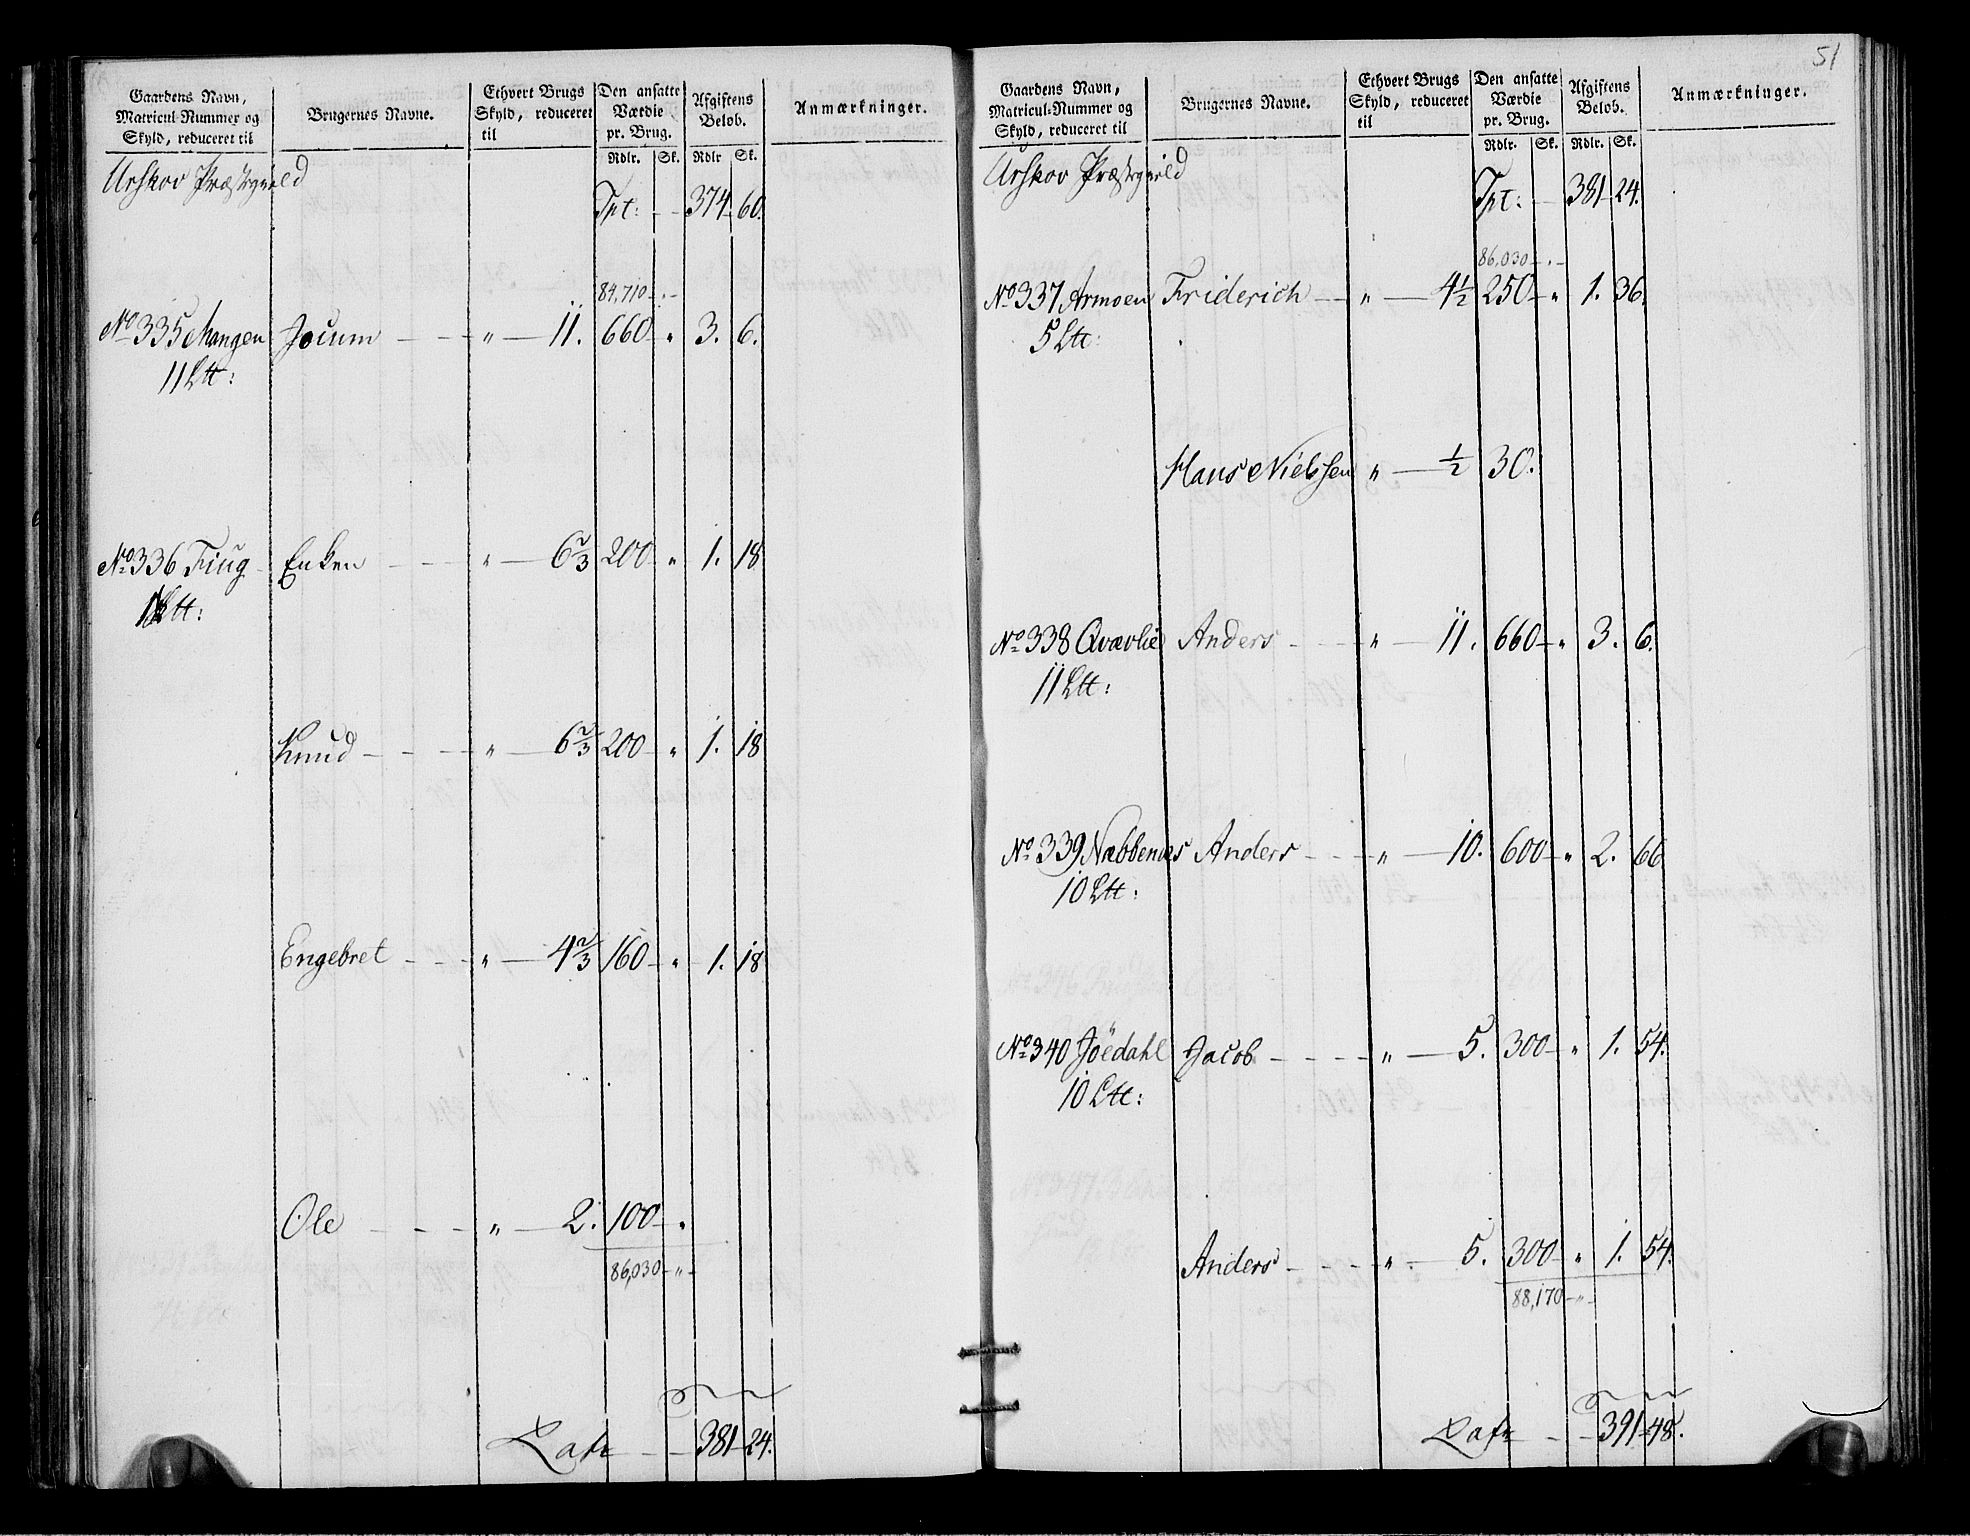 Gaardens Navn, Matricul-Nummer og Skyld, reduceret til | Brugernes Navne. | Ethvert Brugs Skyld, reduceret til | Den ansatte Værdie pr. Brug. | Afgiftens Beløb. | Anmærkninger.
Rdlr. | Sk. | Rdlr | Sk.
Urskov Præstegield
Tpt: - - 374 60.
84,710 - „ -
No 335 Mangen Jocum - - - „ - 11. 660 „ 3. 6.
11 Ltt:
No 336 Fiug Enken - - - „ - 6 2/3 200 „ 1. 18
Ltt:
Knud - - - „ - 6 2/3 200 „ 1. 18
Engebret - - - „ - 4 2/3 160 „ 1. 18
Ole - - - „ - 2. 100 „
86,030 - „ -
Lateris - - 381 24.
51
Gaardens Navn, Matricul-Nummer og Skyld, reduceret til | Brugernes Navne. | Ethvert Brugs Skyld, reduceret til | Den ansatte Værdie pr. Brug. | Afgiftens Beløb. | Anmærkninger.
Rdlr. | Sk. | Rdlr. | Sk.
Urskov Præstegield
Tpt: - - 381 24.
86,030 - „ -
No 337 Armoen Friderich - - „ - 4 1/2 250 „ 1. 36.
5 Ltt:
Hans Nielssen „ - 1/2 30.
No 338 Qvævlie Anders - - - „ - 11. 660 „ 3. 6.
11 Ltt:
No 339 Næbbenæs Anders - - - „ - 10. 600 „ 2. 66
10 Ltt:
No 340 Jöedahl Jacob - - - - „ - 5. 300 „ 1. 54.
10 Ltt:
Anders - - - - „ - 5. 300 „ 1. 54.
88,170 - „ -
Lateris - - 391 48.